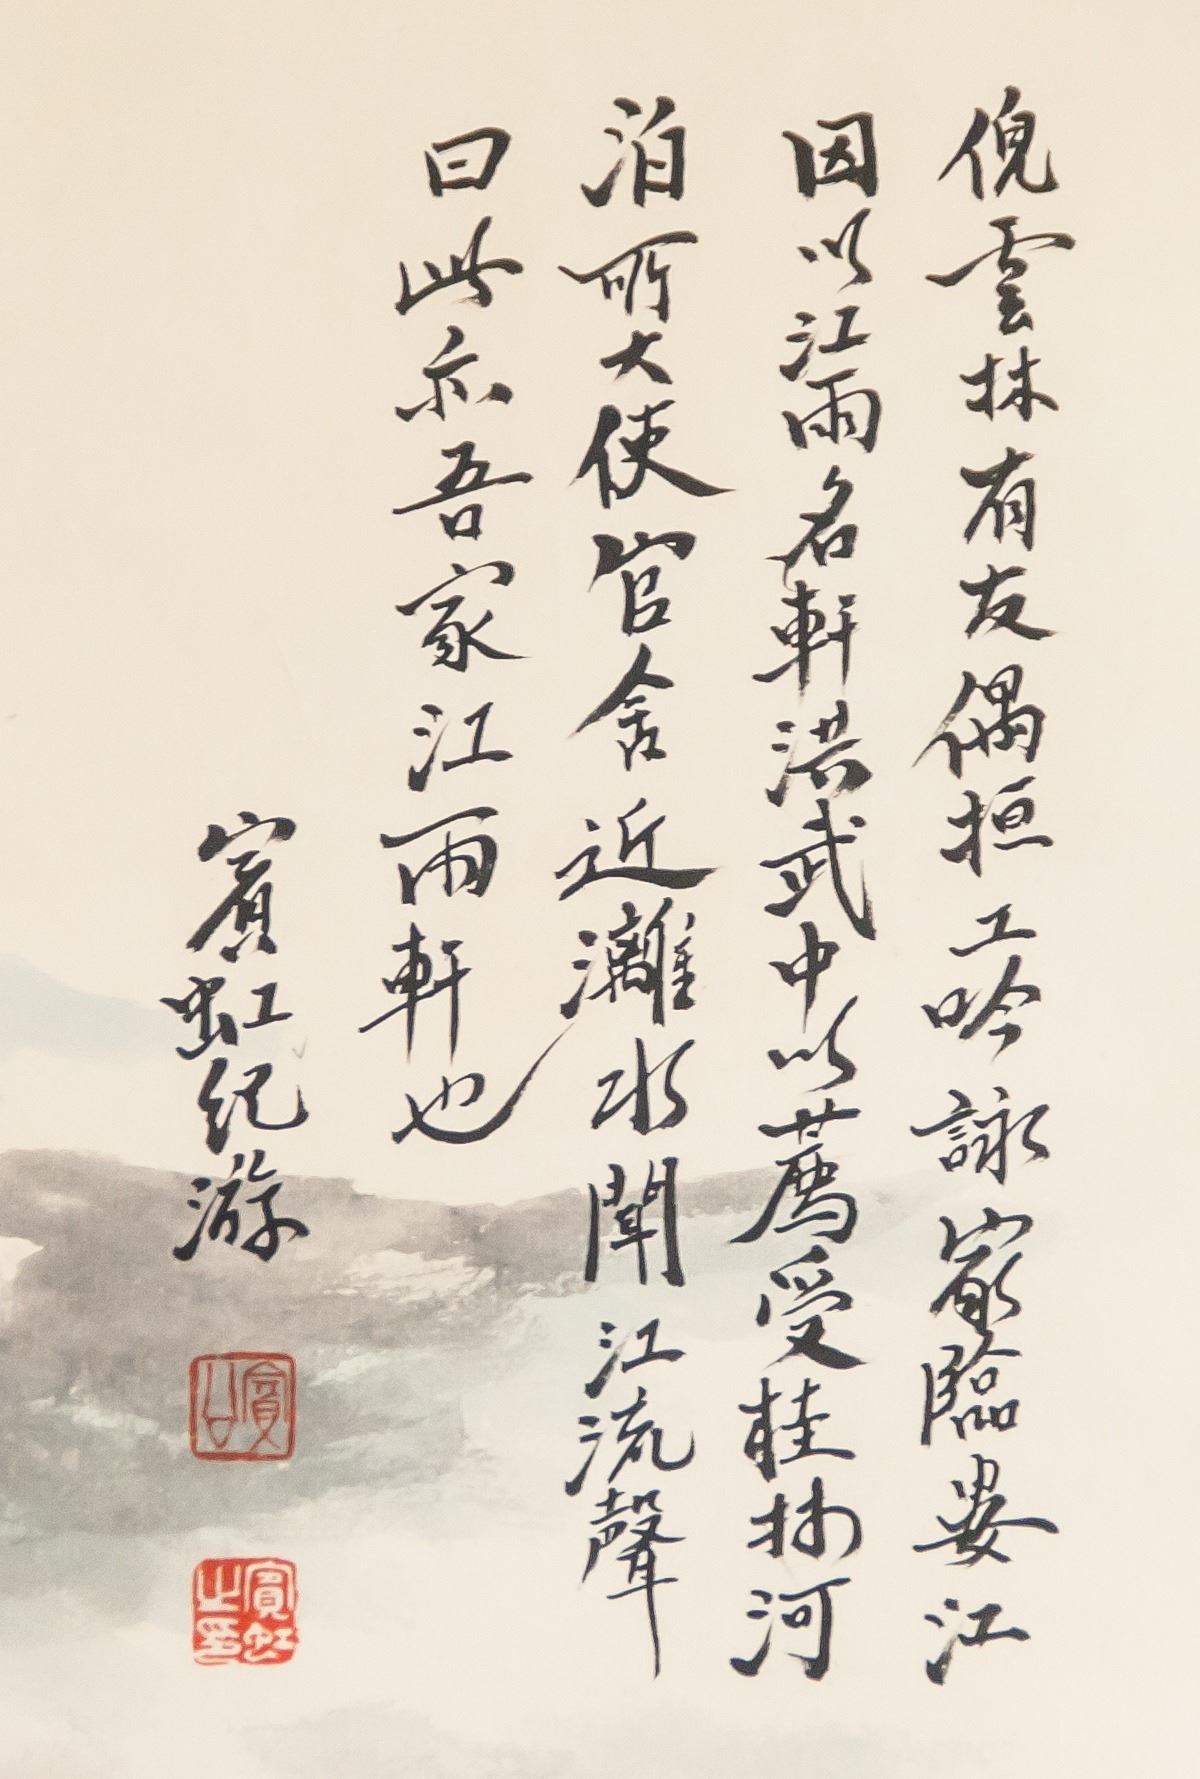 倪雲林有友偶桓工吟詠家臨婁江
因以江雨名軒洪武中以薦受桂林河
泊所大使官舍近灕水聞江流聲
曰此亦吾家江雨軒也
賓虹紀游
賓公
賓虹之印